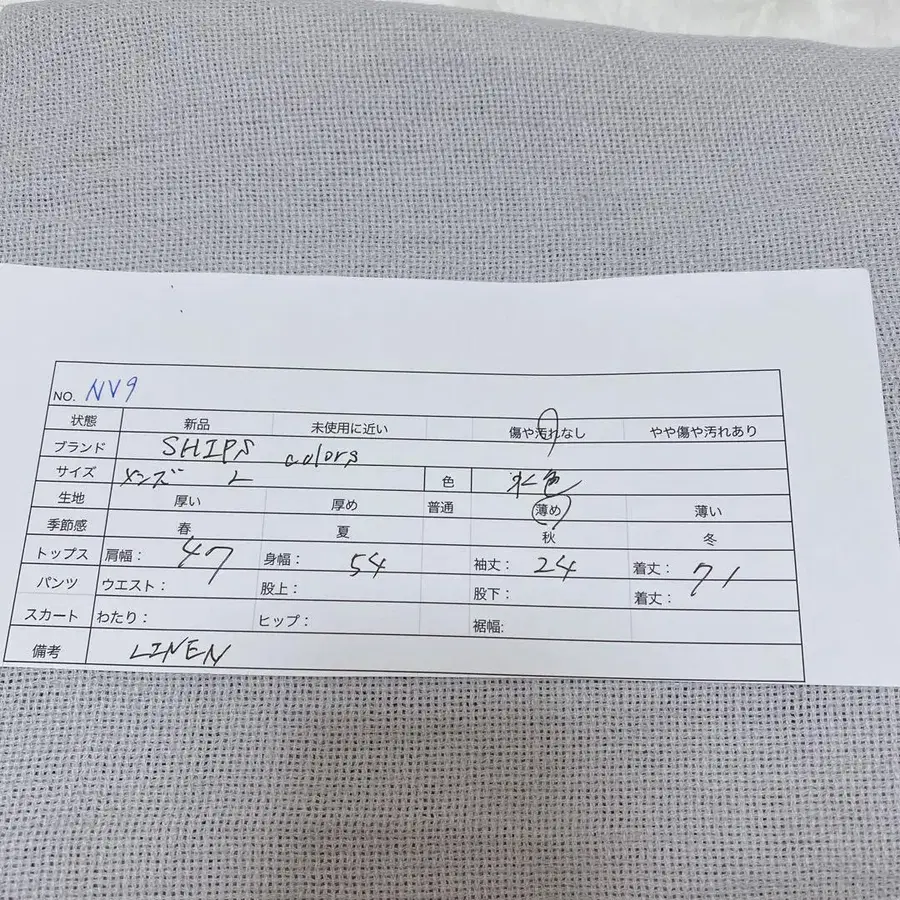 NO. NV9
状態 新品 未使用に近い 傷や汚れなし やや傷や汚れあり
ブランド SHIPS colors
サイズ メンズ L 色 水色
生地 厚い 厚め 普通 薄め 薄い
季節感 春 夏 秋 冬
トップス 肩幅： 47 身幅： 54 袖丈： 24 着丈： 71
パンツ ウエスト： 股上： 股下： 着丈：
スカート わたり： ヒップ： 裾幅:
備考 LINEN